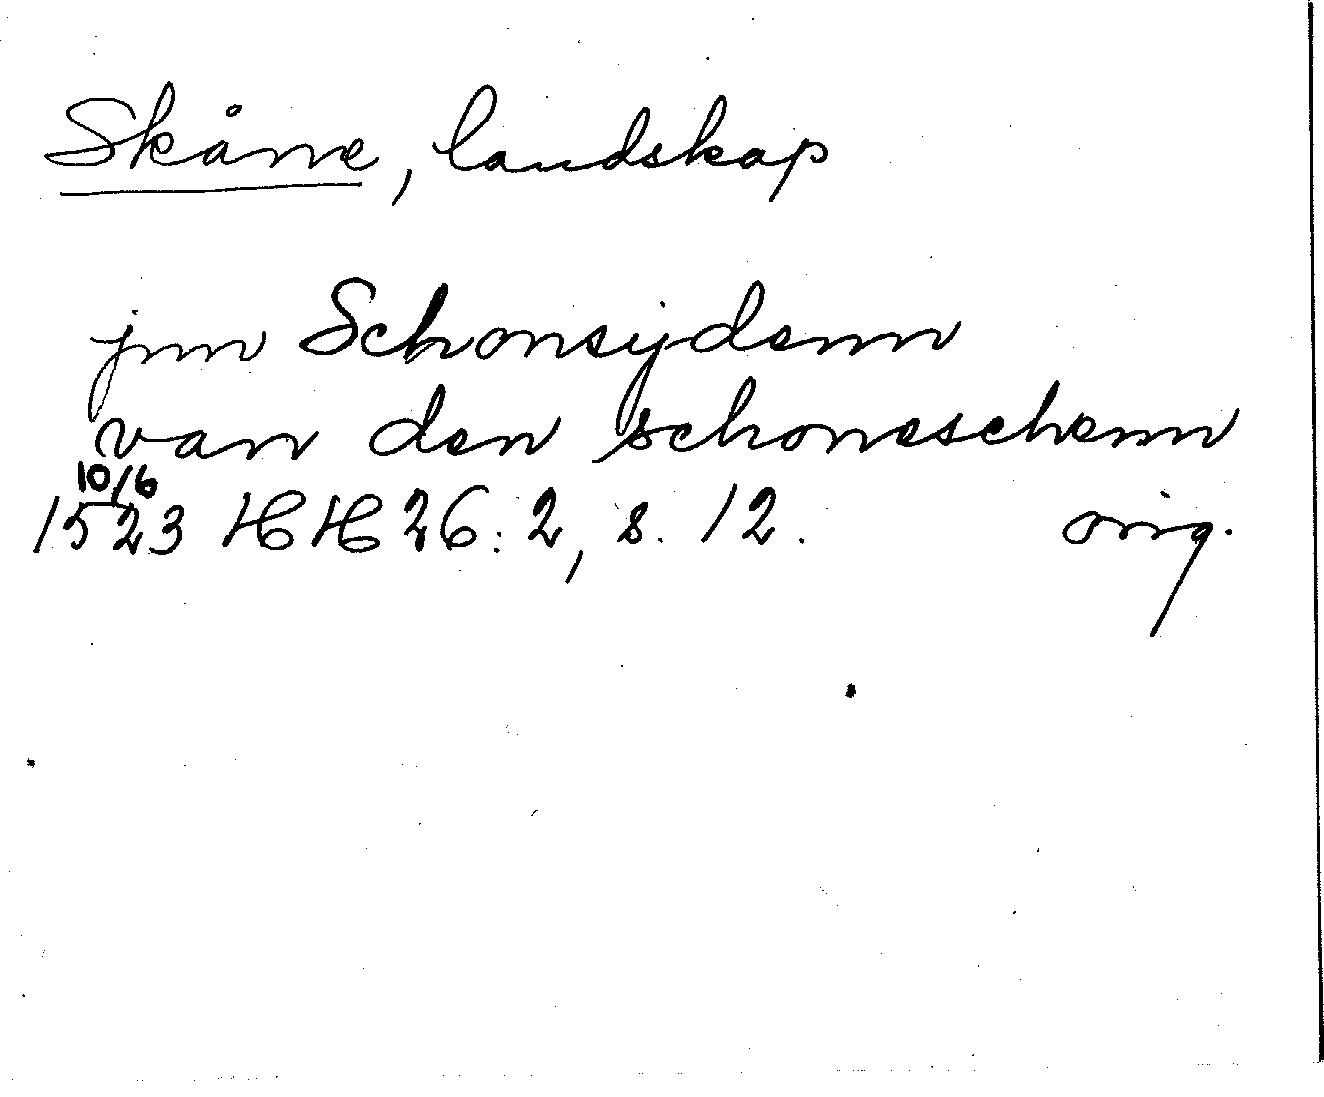 Skåne, landskap
jnn Schonsydenn
van den schoneschenn
10/6
1523 HH 26:2, s. 12. orig.